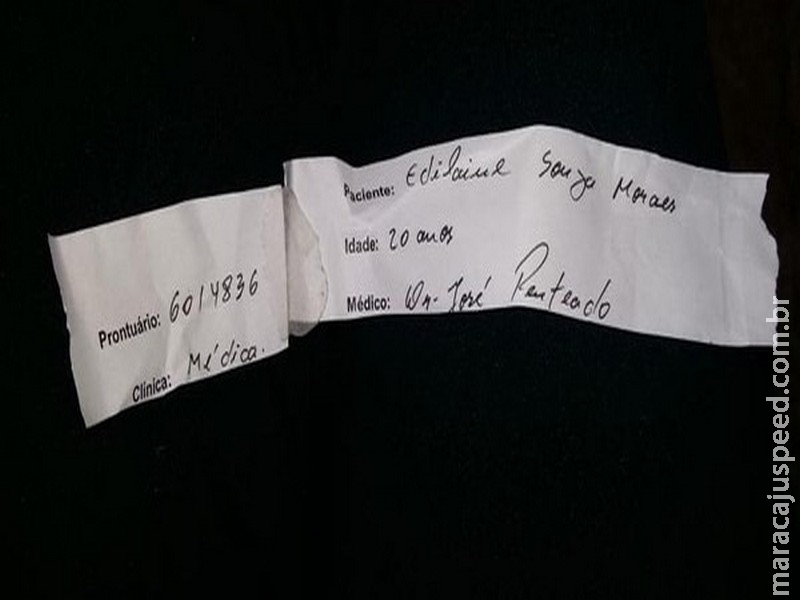 Prontuário: 6014836
Clínica: Médica.
Paciente: Edilaine Souza Moraes
Idade: 20 anos
Médico: Dr. José Penteado
maracajuspeed.com.br